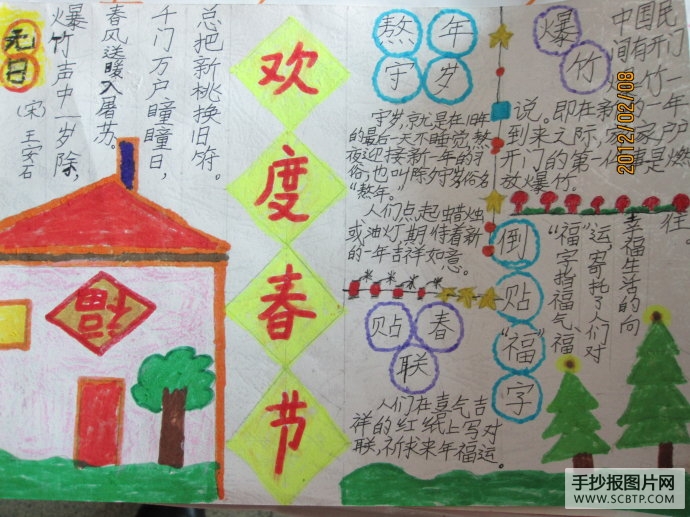 元日
(宋)王安石
爆竹声中一岁除,
春风送暖入屠苏。
千门万户瞳瞳日,
总把新桃换旧符。
福
欢度春节
熬年
守岁
守岁,就是在旧年
的最后一天不睡觉,熬
夜迎接新一年的习
俗,也叫除夕守岁俗名
“熬年”。
人们点起蜡烛
或油灯,期待着新
的一年吉祥如意。
爆竹
中国民
间有开门
爆竹一
说。即在新的一年
到来之际,家家户户
开门的第一件事是燃
放爆竹。
倒贴“福”字
“福”字指福气、福
运,寄托了人们对
幸福生活的向
往。
贴春
联
人们在喜气吉
祥的红纸上写对
联,祈求来年福运。
2012/02/08
手抄报图片网
WWW.SCBTP.COM